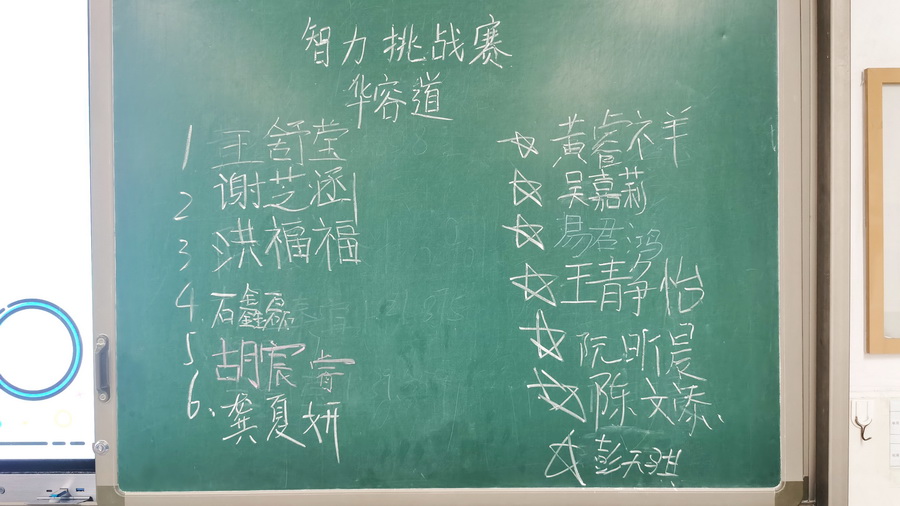 智力挑战赛
华容道
1 王舒莹
2 谢芝涵
3 洪福福
4. 石鑫磊
5 胡宸
6、龚夏妍
☆ 黄睿祥
☆ 吴嘉莉
☆ 易君鸿
☆ 王静怡
☆ 阮昕晨
☆ 陈文添
☆ 彭天琪